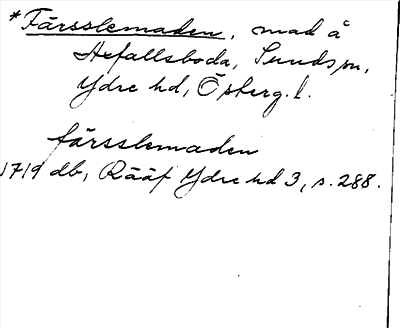 *Färsslemaden, mad å
Hefallsboda, Sunds sn,
Ydre hd, Österg. l.
färsslemaden
1719 db, Rääf Ydre hd 3, s. 288.